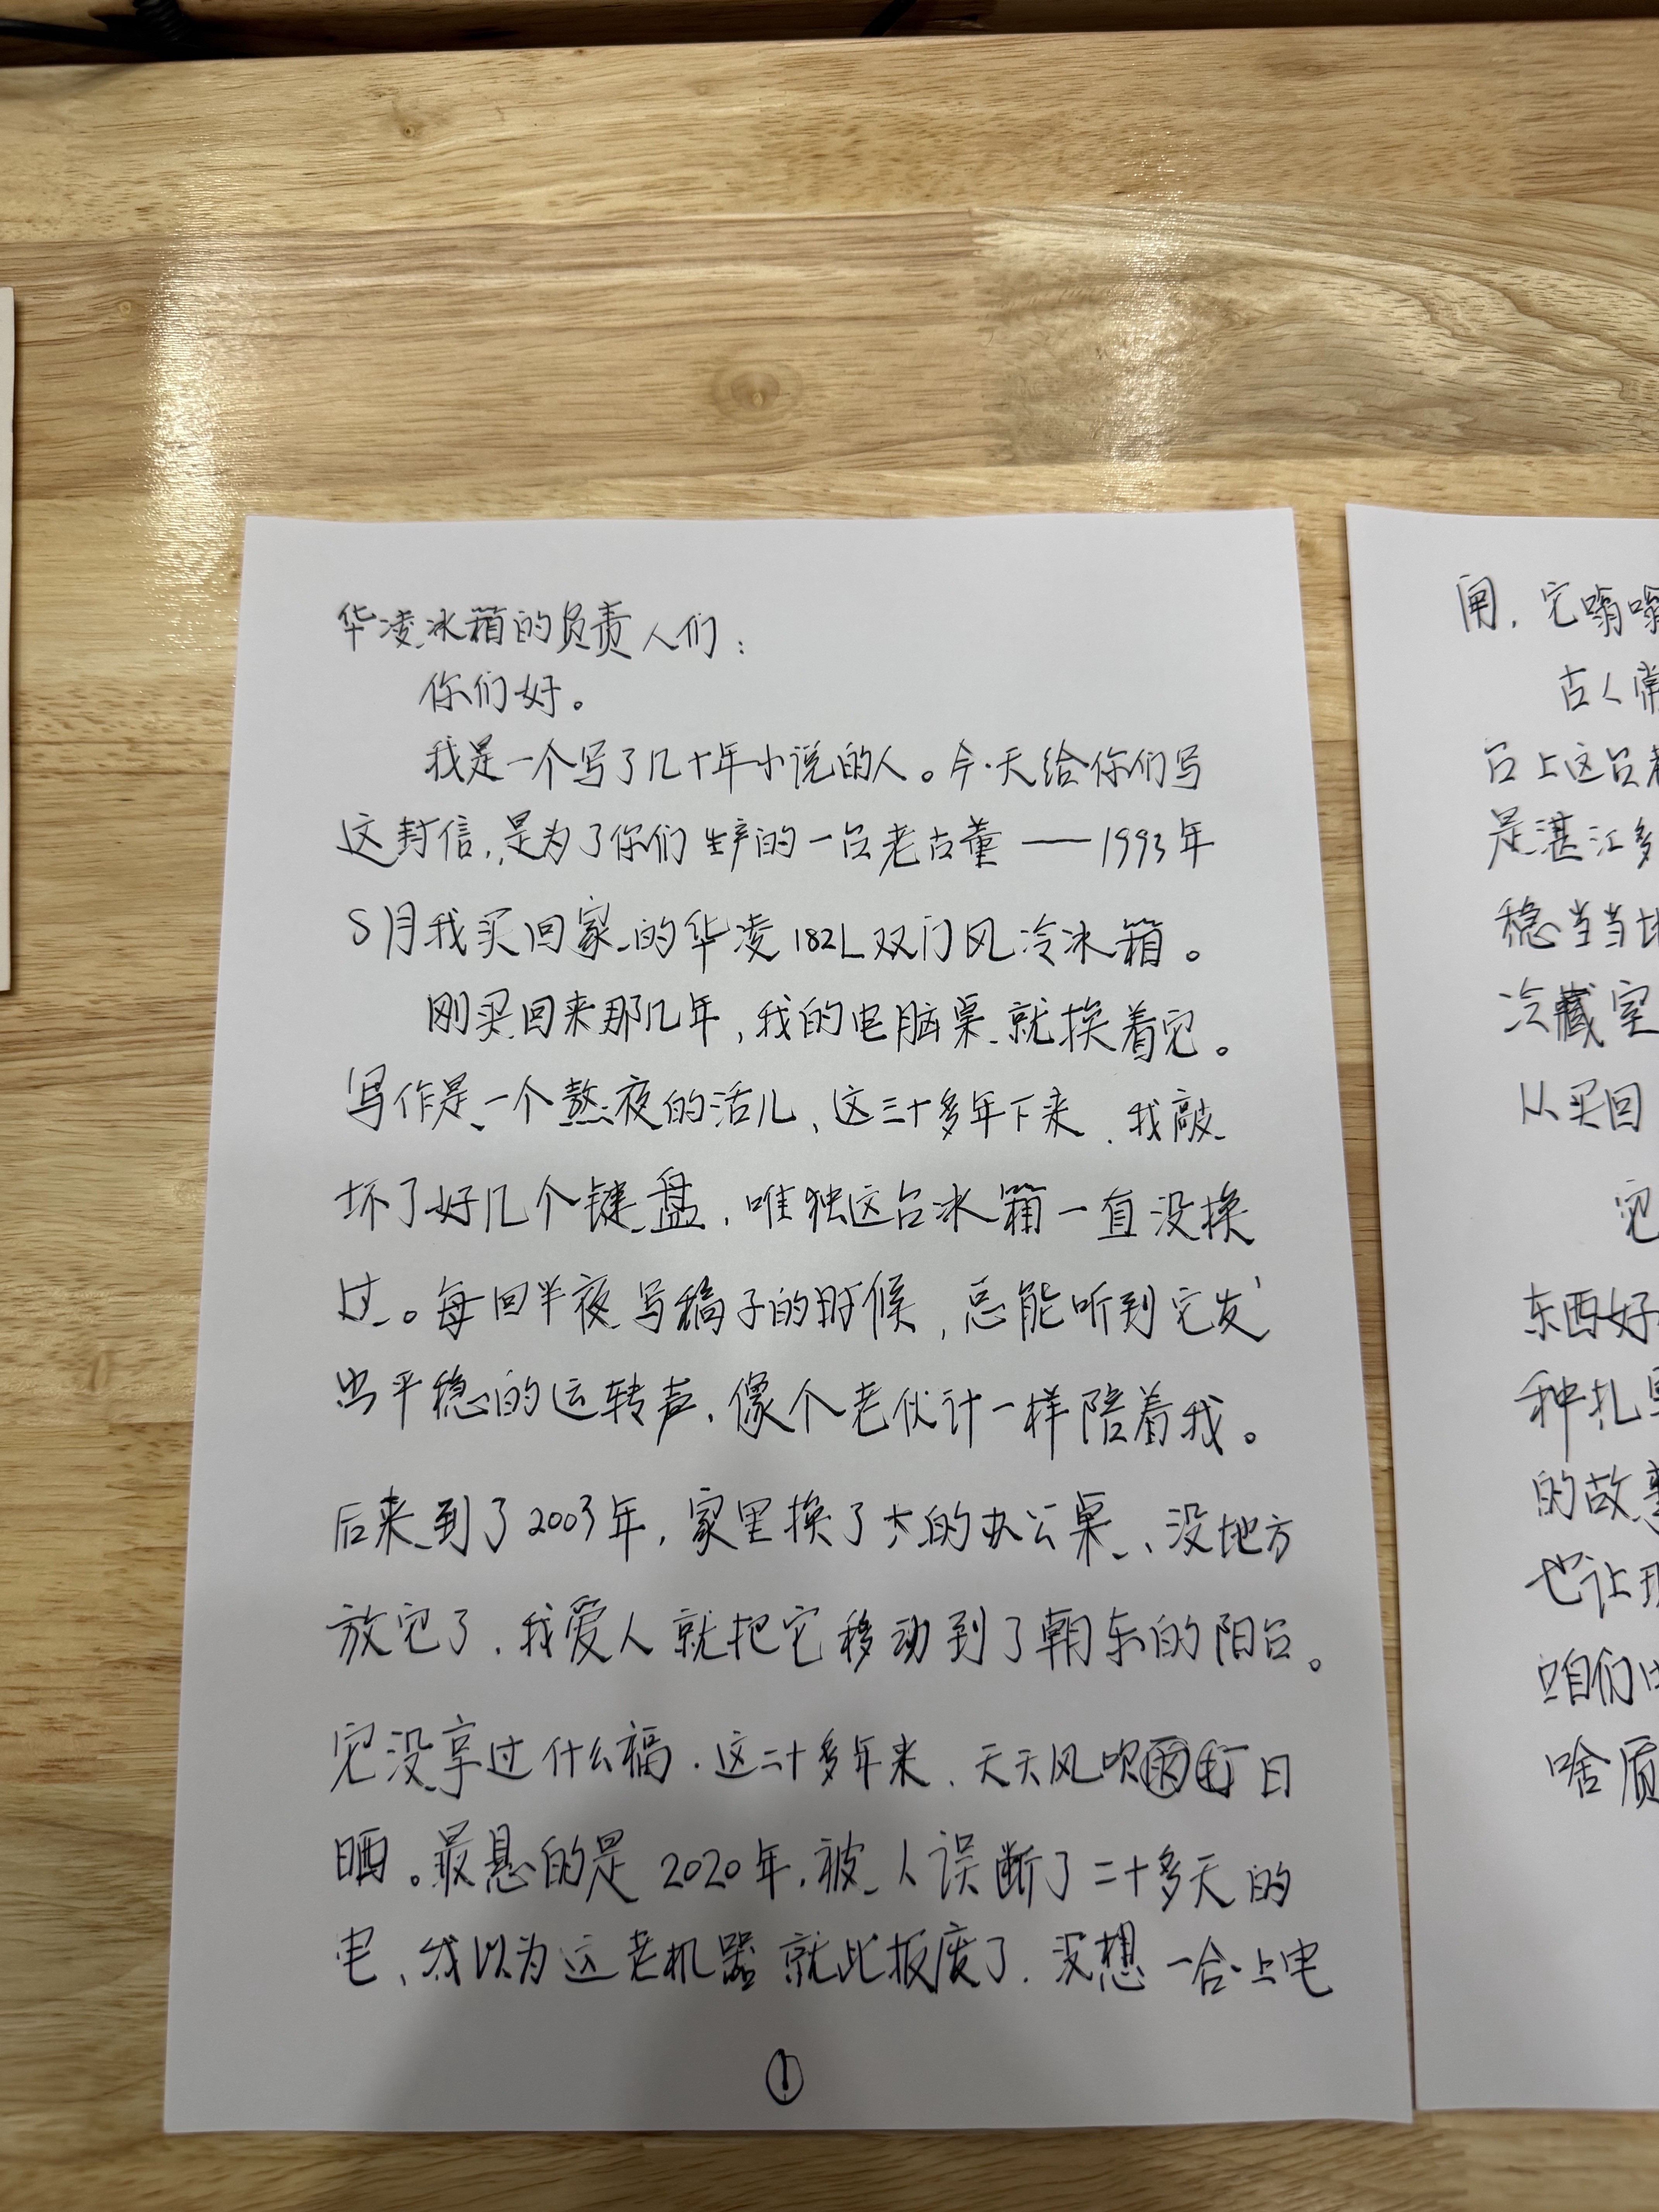 华凌冰箱的负责人们：
你们好。
我是一个写了几十年小说的人。今天给你们写
这封信，是为了你们生产的一台老古董——1993年
5月我买回家的华凌182L双门风冷冰箱。
刚买回来那几年，我的电脑桌就挨着它。
写作是一个熬夜的活儿，这三十多年下来，我敲
坏了好几个键盘，唯独这台冰箱一直没换
过。每回半夜写稿子的时候，总能听到它发
出平稳的运转声，像个老伙计一样陪着我。
后来到了2003年，家里换了大的办公桌，没地方
放它了，我爱人就把它移动到了朝东的阳台。
它没享过什么福，这二十多年来，天天风吹雨打日
晒。最悬的是2020年，被人误断了二十多天的
电，我以为这老机器就此报废了，没想一合上电
①
用，它嗡嗡
古人常
台上这台老
是湛江多
稳当当地
冷藏室
从买回
它
东西好
种扎
的故事
也让我
咱们
啥质